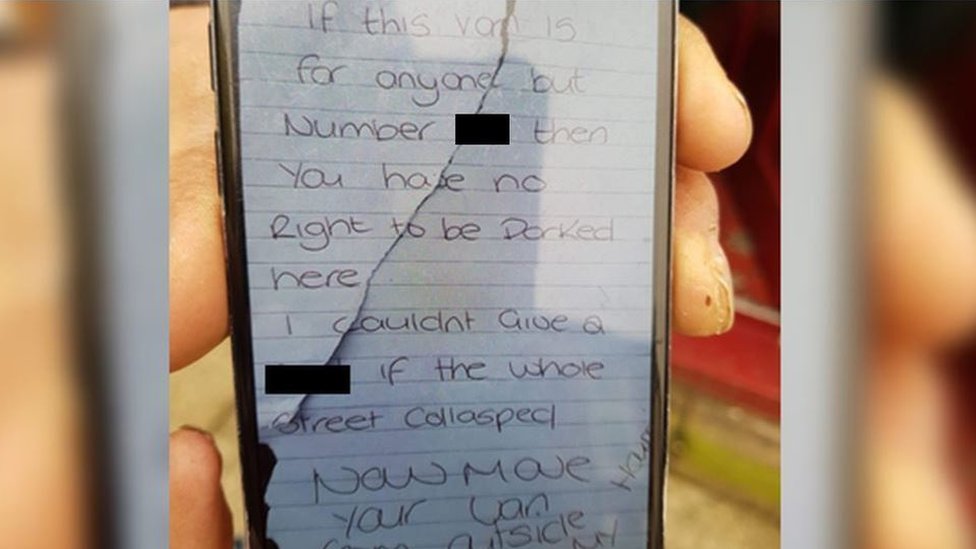 If this van is
for anyone but
Number then
You have no
Right to be Parked
here
I couldnt Give a
if the whole
Street Collasped
Now Move
Your Van
outside
MY